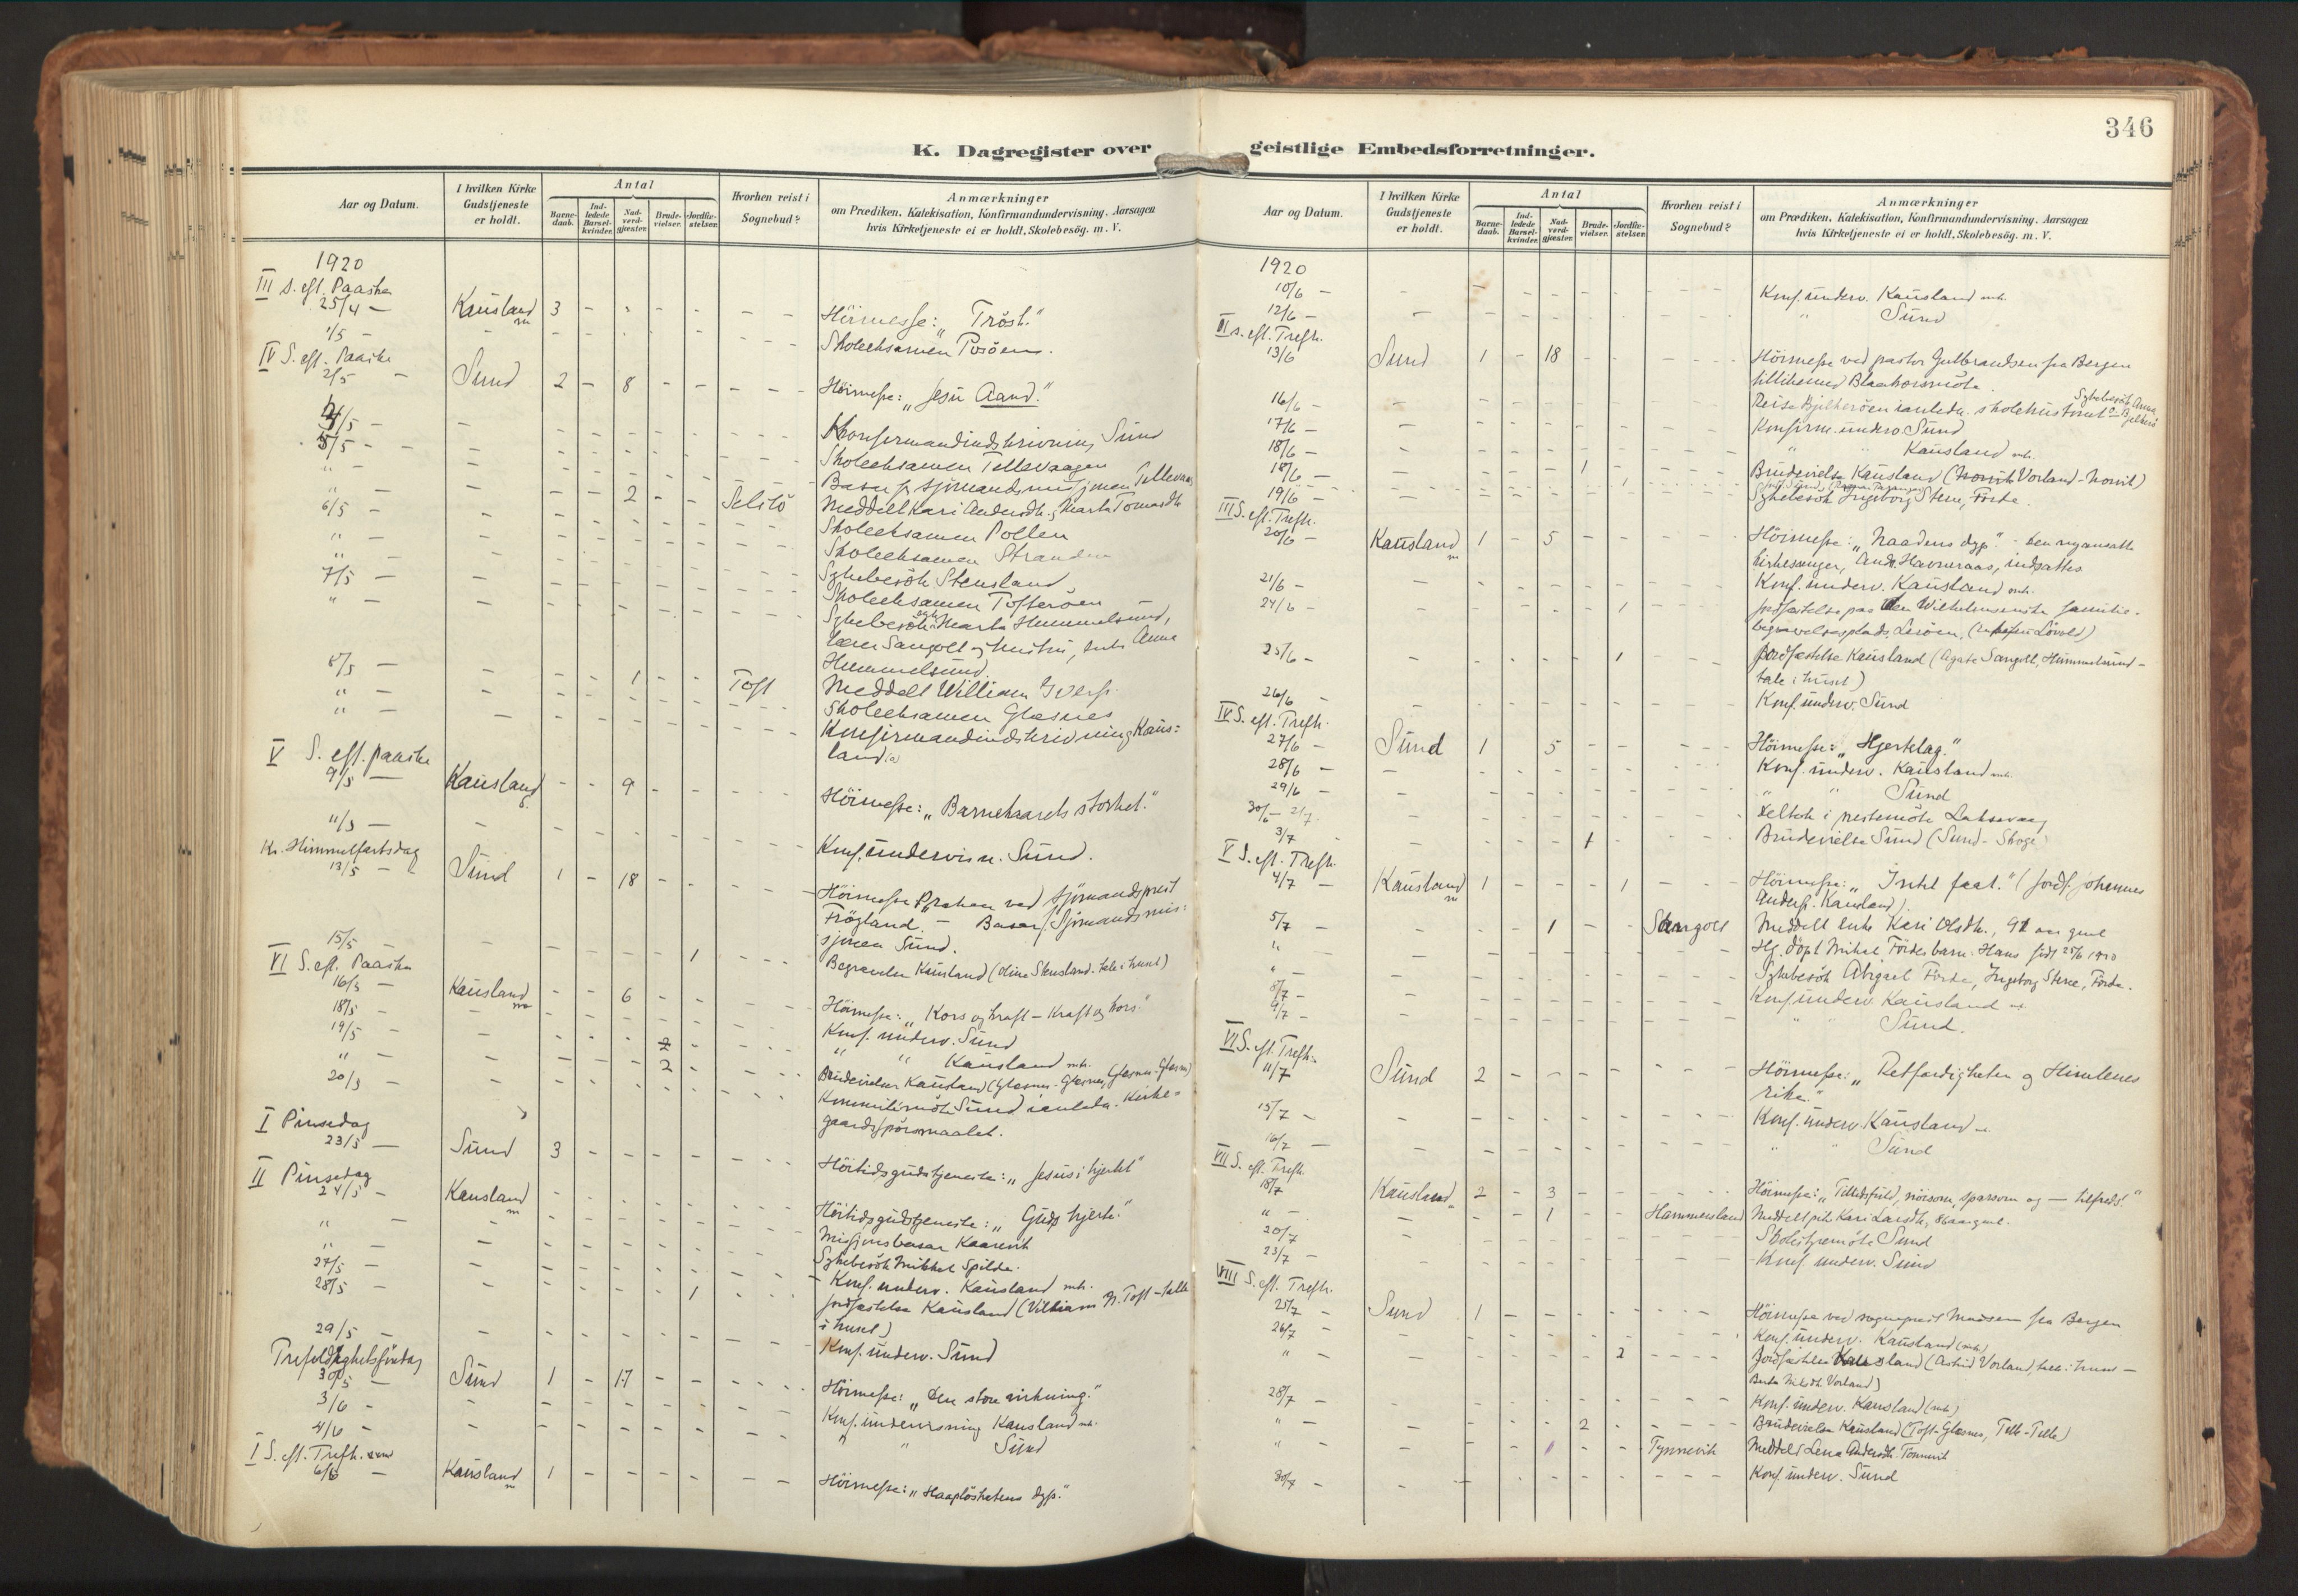 346
K. Dagregister over geistlige Embedsforretninger.
Aar og Datum. I hvilken Kirke Gudstjeneste er holdt. Antal Barne-daab. Ind-ledede Barsel-kvinder. Nad-verd-gjæster. Brude-vielser. Jordfæ-stelser. Hvorhen reist i Sognebud? Anmærkninger om Prædiken, Katekisation, Konfirmandundervisning, Aarsagen hvis Kirketjeneste ei er holdt, Skolebesøg. m. V.
1920
III s. eft. Paaske
25/4 — Kausland m 3 - - - - - - Höimesse: "Tröst."
1/5 - Skoleeksamen
IV S. eft. Paaske
2/5 — Sund 2 - 8 - - - - Höimesse: "Jesu Aand."
4/5 — Konfirmandindskrivning Sund
5/5 - Skoleeksamen Tellevaagen
" - Basar f. sjömandsmisjonen
" - 2 - - Selstö Meddelt Kari Andersdtr. og Marta
6/5 — Skoleeksamen Pollen
" - Skoleeksamen Stranden
" - Sykebesök Stensland
7/5 — Skoleeksamen Tofteröen
" - Sykebesök Marta Hummelsund,
lærer Sangolt og hustru, enke Anna
Hummelsund.
8/5 — 1 - - Toft Meddelt William Iverss.
" — Skoleeksamen Glesnes
" — Konfirmandindskrivning Kaus=
land
V S. eft. paaske
9/5 — Kausland - - 9 - - - Höimesse: "Barnekaarets storhet."
11/5 — Konf. undervisn. Sund.
Kr. Himmelfartsdag
13/5 — Sund 1 - 18 - - - Höimesse ved sjömandsprest
Frögland. — Basar f. Sjömandsmis=
sjonen Sund.
15/5 - 1 Begravelse Kausland (Oline Stensland. tale i huset)
VI S. eft. Paaske
16/5 — Kausland - - 6 - - - Höimesse: "Kors og kraft - Kraft og kors."
18/5 - Konf. underv. Sund
19/5 - " " Kausland
" - 2 - Brudevielser Kausland (Glesnes-Glesnes, Glesnes-Glesnes)
20/5 - Kommunemöte Sund i anleda. Kirke=
gaardsspörsmaalet.
I Pinsedag
23/5 — Sund 3 - - - - - - Höitidsgudstjeneste: "Jesus i hjertet"
II Pinsedag
24/5 - Kausland m - - - - - Höitidsgudstjeneste: "Guds hjerte."
" — Misjonsbasar Kaarevik
" — Sykebesök Mikkel Spilde.
27/5 — Konf. underv. Kausland
28/5 - 1 Jordfæstelse Kausland (William Toft - tale
i huset)
29/5 — Konf. underv. Sund
Trefoldighetssöndag
30/5 — Sund 1 - 17 - - - Höimesse: "Den store virkning."
3/6 - Konf. undervisning Kausland
4/6 - " " Sund
I S. eft. Trefh.
6/6 — Kausland m 1 - - - - - - Höimesse: "Haaplöshetens dyp."
Aar og Datum. I hvilken Kirke Gudstjeneste er holdt. Antal Barne-daab. Ind-ledede Barsel-kvinder. Nad-verd-gjæster. Brude-vielser. Jordfæ-stelser. Hvorhen reist i Sognebud? Anmærkninger om Prædiken, Katekisation, Konfirmandundervisning, Aarsagen hvis Kirketjeneste ei er holdt, Skolebesög. m. V.
1920
10/6 — Konf. underv. Kausland
12/6 — " Sund
II s. eft. Trefh.
13/6 Sund 1 - 18 - - - Höimesse ved pastor Gulbrandsen fra Bergen
Blaakorsmöte.
16/6 — Reise Bjelkeröen i anledn. skolehustomt Sykebesök Anna
17/6 — Konfirm. underv. Sund
18/6 — " " Kausland
18/6 — 1 Brudevielse Kausland
19/6 — 1 Sykebesök Ingeborg Stene, Förde.
III S. eft. Trefh.
20/6 — Kausland m 1 - 5 - - - Höimesse: "Naadens dyp." - Den nyansatte
kirkesanger, Andr. Havneraas, indsattes
21/6 — Konf. underv. Kausland
24/6 — 1 Jordfæstelse paa den Wilhelmsenske familie-
begravelsesplads, Leröen,
25/6 — 1 Jordfæstelse Kausland (Agate Sangolt, Hummelsund -
tale i huset)
26/6 — Konf. underv. Sund
IV S. eft. Trefh.
27/6 — Sund 1 - 5 - - - Höimesse: "Hjertelag."
28/6 — Konf. underv. Kausland
29/6 — " " Sund
30/6 - 2/7 Deltok i prestemöte Laksevaag
3/7 1 Brudevielse Sund (Sund - Skoge)
V S. eft. Trefh.
4/7 — Kausland m 1 - - - 1 - Höimesse: "Intet fast." (Jordf. Johannes
Anderss. Kausland).
5/7 - 1 - - Sangolt Meddelt enke Kari Olsdtr., 91 aar gml
" Hj. döpt Mikal Fördes barn: Hans född 25/6 1920
" - Sykebesök Abigael Förde, Ingeborg Stene, Förde.
8/7 - Konf. underv. Kausland
9/7 - " " Sund.
VI S. eft. Trefh.
11/7 Sund 2 - - - - - Höimesse: "Retfærdigheten og Himlenes
rike."
15/7 — Konf. underv. Kausland
16/7 — " " Sund
VII S. eft. Trefh.
18/7 Kausland 2 - 3 - - - Höimesse: "Tillidsfuld, nöisom, sparsom og — tilfreds."
" - 1 - Hammersland Meddelt pike Kari Larsdtr, 86 aar gml.
20/7 Sund
23/7 — Konf. underv. Sund
VIII S. eft. Trefh.
25/7 - Sund 1 - - - Höimesse ved sogneprest Madsen fra Bergen
26/7 - Konf. underv. Kausland
" - 2 - Jordfæstelse Kausland (Astrid Vorland, tale i huset —
Berta Nilsdtr. Vorland)
28/7 - Konf. underv. Kausland
" - 2 - Brudevielse Kausland (Toft-Glesnes, Telle-Telle)
" - Tynnevik Meddelt Lena Andersdtr.
30/7 - Konf. underv. Sund